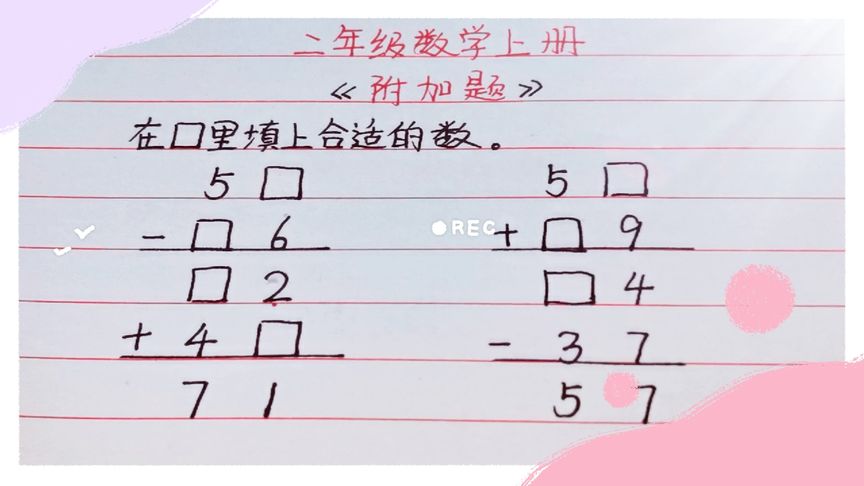 二年级数学上册
《附加题》
在□里填上合适的数。
5 □
- □ 6
□ 2
+ 4 □
7 1
REC
5 □
+ □ 9
□ 4
- 3 7
5 7